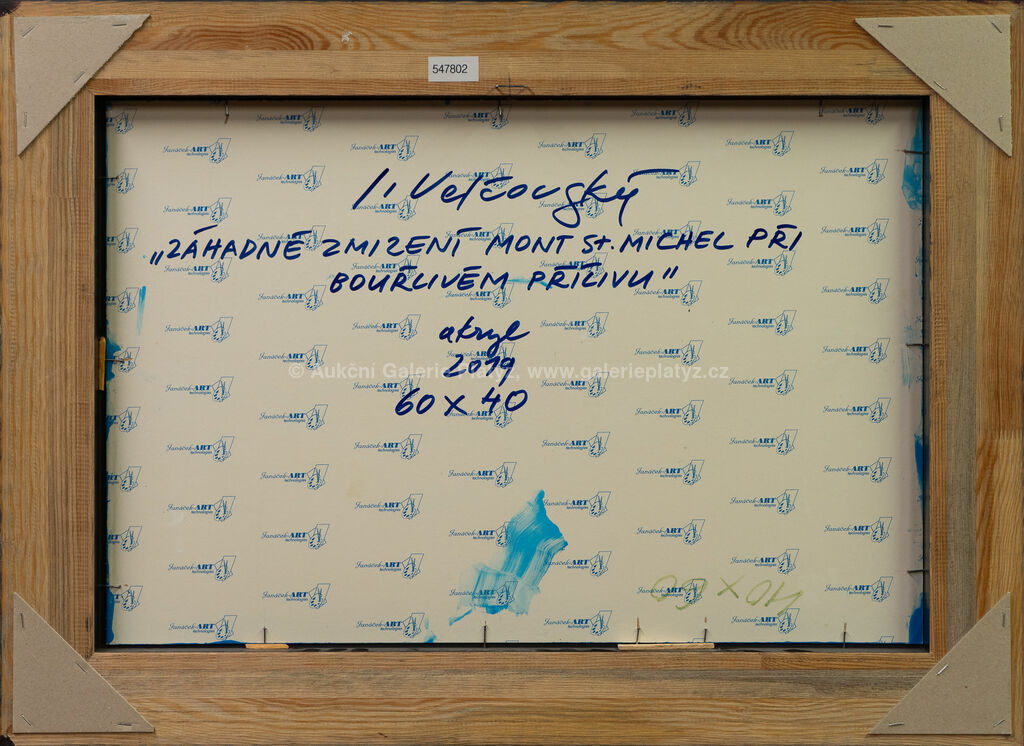 547802
I. Velčovský
„ZÁHADNÉ ZMIZENÍ MONT St. MICHEL PŘI
BOUŘLIVÉM PŘÍLIVU"
akryl
2019
© Aukční Galerie Platýz, www.galerieplatyz.cz
60 x 40
Janáček-ART
technologies
40 x 60